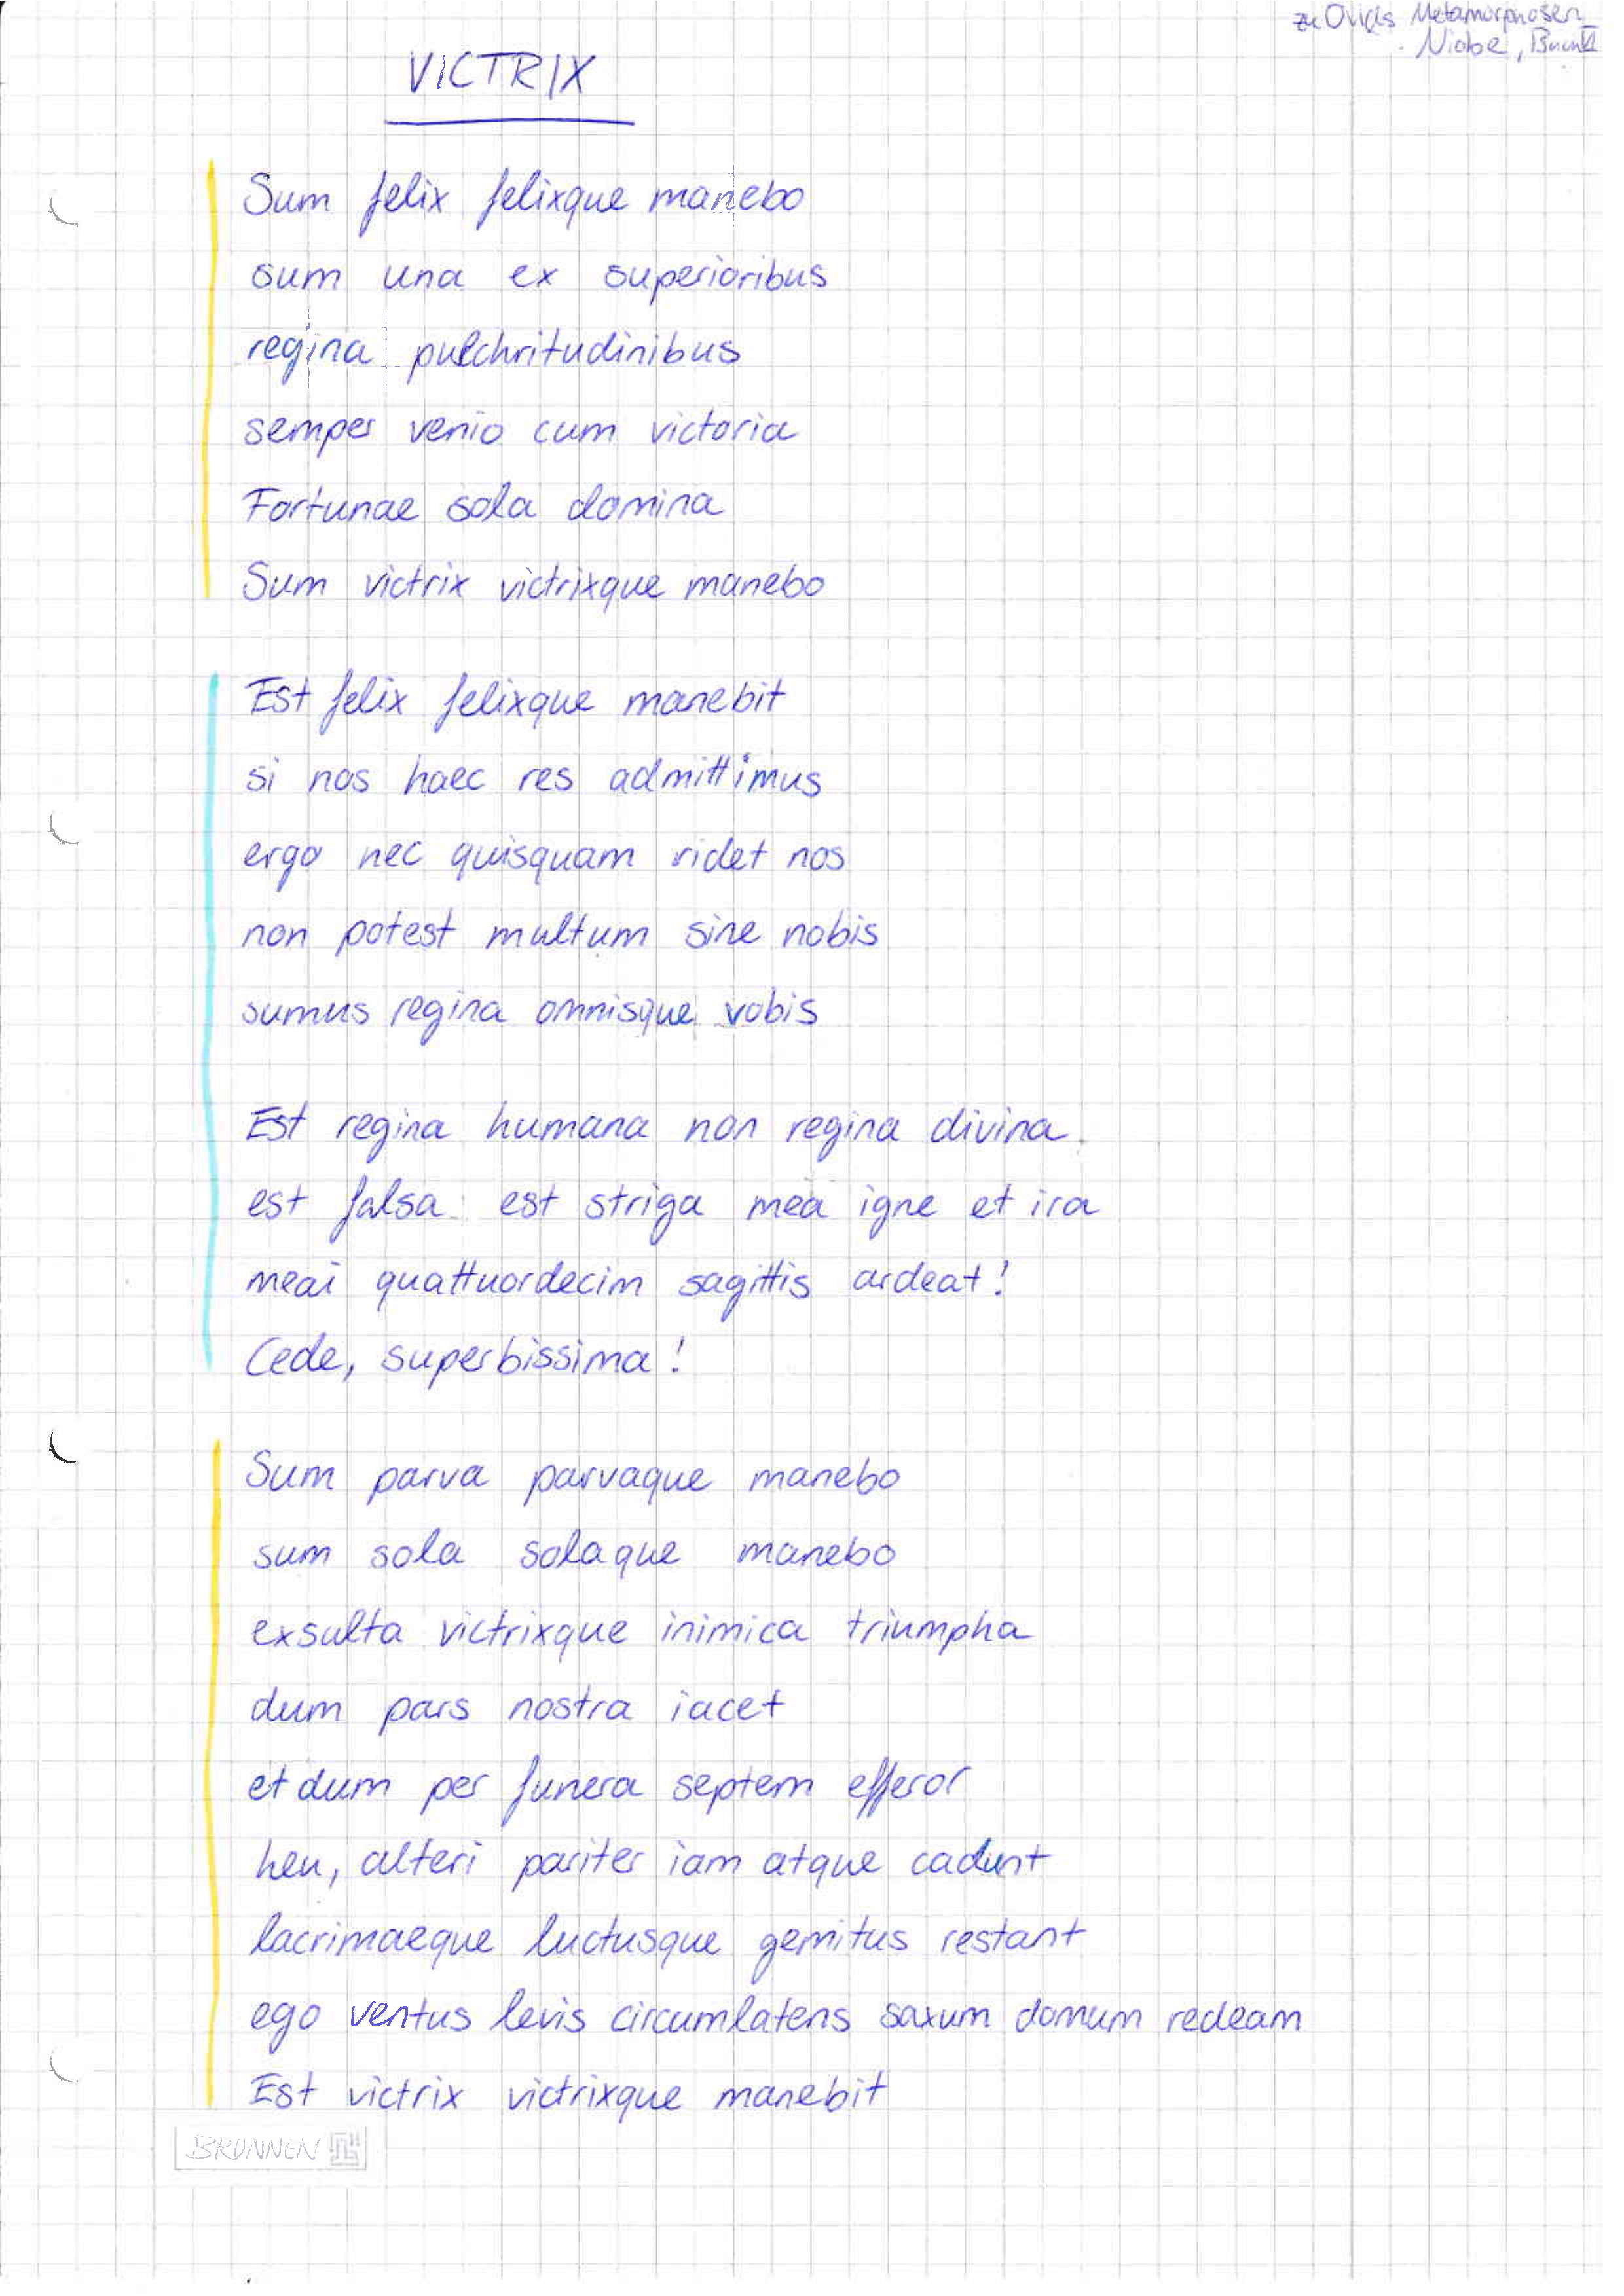 zu Ovids Metamorphosen
Niobe, Buch VI
VICTRIX
Sum felix felixque manebo
sum una ex superioribus
regina pulchritudinibus
semper venio cum victoria
Fortunae sola domina
Sum victrix victrixque manebo
Est felix felixque manebit
si nos haec res admittimus
ergo nec quisquam ridet nos
non potest multum sine nobis
sumus regina omnisque vobis
Est regina humana non regina divina
est falsa est striga mea igne et ira
meai quattuordecim sagittis ardeat!
Cede, superbissima!
Sum parva parvaque manebo
sum sola solaque manebo
exsulta victrixque inimica triumpha
dum pars nostra iacet
et dum per funera septem efferor
heu, alteri pariter iam atque cadunt
lacrimaeque luctusque gemitus restant
ego ventus levis circumlatens saxum domum redeam
Est victrix victrixque manebit
BRUNNEN